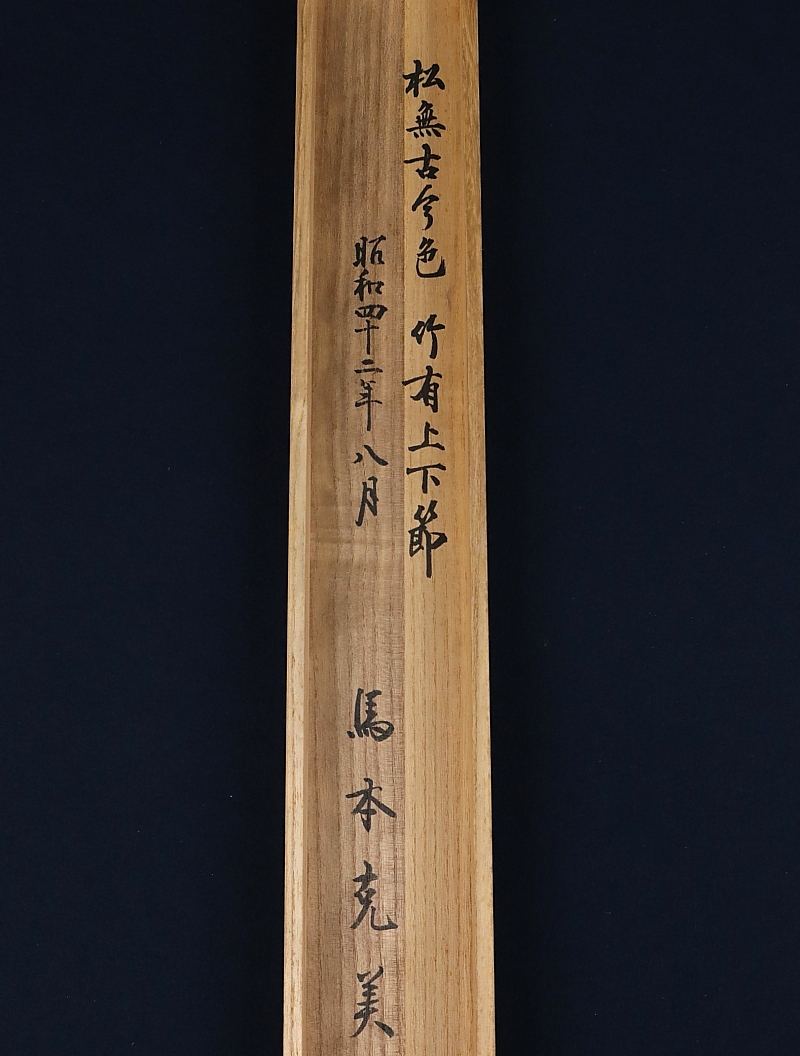 松無古今色 竹有上下節
昭和四十二年八月
馬本克美